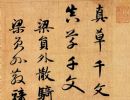 真草千文
真草千文
梁員外散騎
梁員外散騎